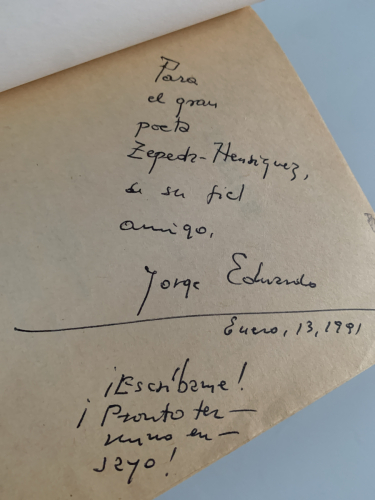 Para
el gran
poeta
Zepeda-Henríquez,
de su fiel
amigo,
Jorge Eduardo
Enero, 13, 1991
¡Escríbame!
¡Pronto ter-
mino en-
sayo!